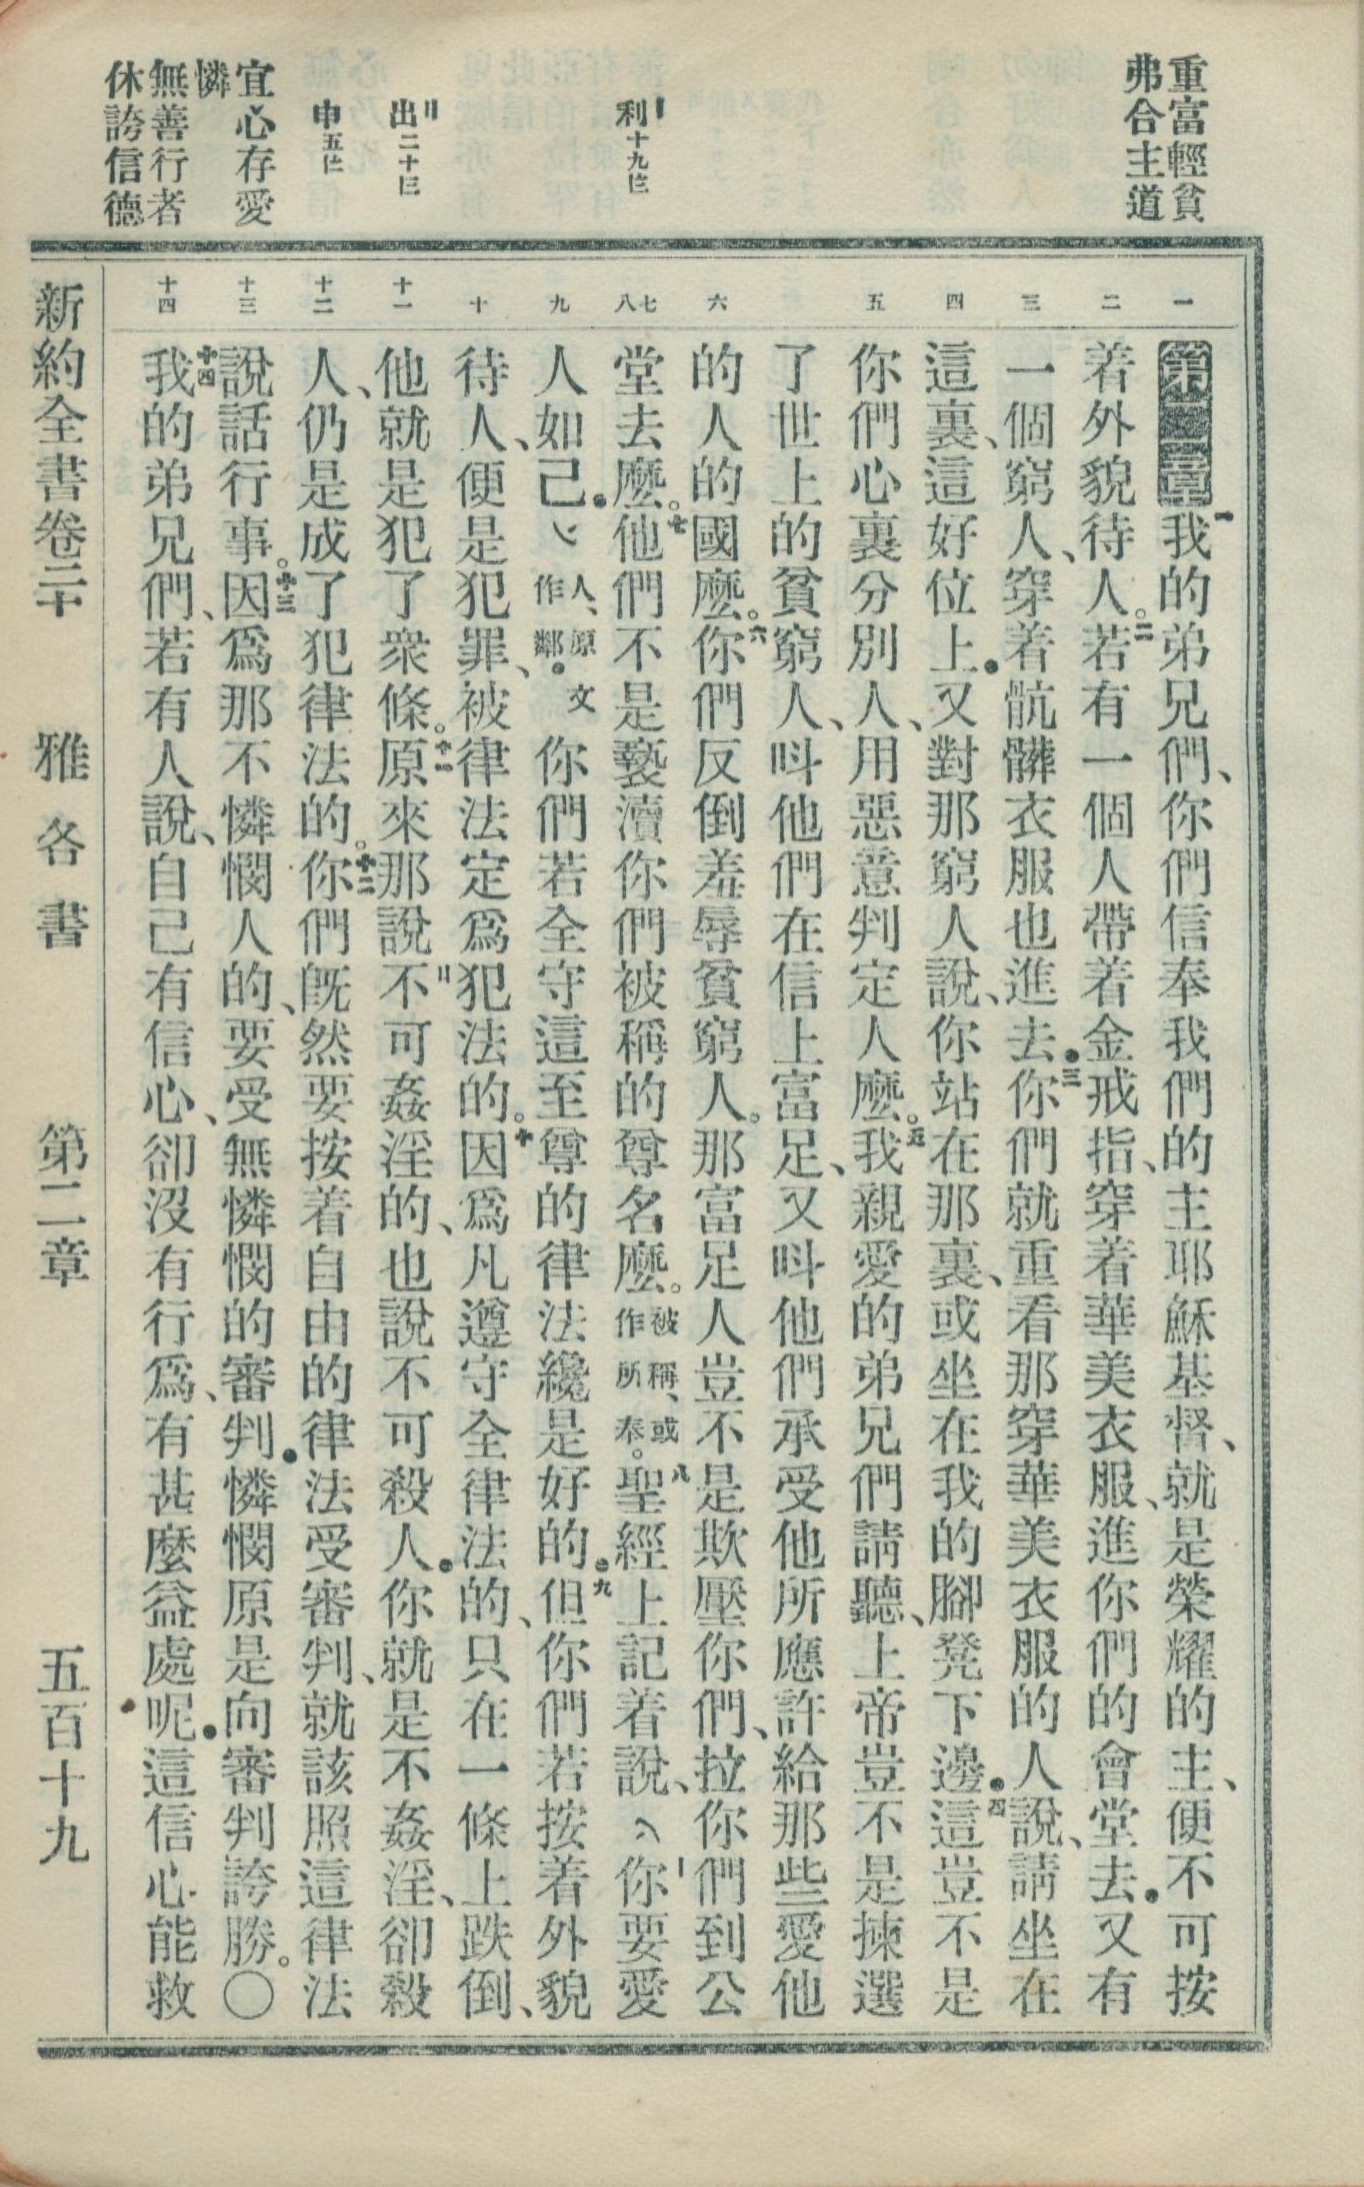 重富輕貧
弗合主道
利十九
出二十
申五
宜心存愛
憐
無善行者
休誇信德
一 二 三 四 五 六 七 八 九 十 十一 十二 十三 十四
第二章一我的弟兄們、你們信奉我們的主耶穌基督、就是榮耀的主、便不可按
着外貌待人。二若有一個人帶着金戒指、穿着華美衣服、進你們的會堂去．又有
一個窮人、穿着骯髒衣服也進去．三你們就重看那穿華美衣服的人說、請坐在
這裏、這好位上．又對那窮人說、你站在那裏、或坐在我的腳凳下邊．四這豈不是
你們心裏分別人、用惡意判定人麼。五我親愛的弟兄們請聽、上帝豈不是揀選
了世上的貧窮人、呌他們在信上富足、又呌他們承受他所應許給那些愛他
的人的國麼。六你們反倒羞辱貧窮人。那富足人豈不是欺壓你們、拉你們到公
堂去麼。七他們不是褻瀆你們被稱的尊名麼。被稱、或作所奉。八聖經上記着說、〈你要愛
人如己．〉人、原文作鄰。你們若全守這至尊的律法纔是好的．九但你們若按着外貌
待人、便是犯罪、被律法定爲犯法的。十因爲凡遵守全律法的、只在一條上跌倒、
他就是犯了衆條。十一原來那說不可姦淫的、也說不可殺人．你就是不姦淫、卻殺
人、仍是成了犯律法的。十二你們旣然要按着自由的律法受審判、就該照這律法
說話行事。十三因爲那不憐憫人的、要受無憐憫的審判．憐憫原是向審判誇勝。〇
十四我的弟兄們、若有人說、自己有信心、卻沒有行爲、有甚麼益處呢．這信心能救
新約全書卷二十 雅各書 第二章 五百十九